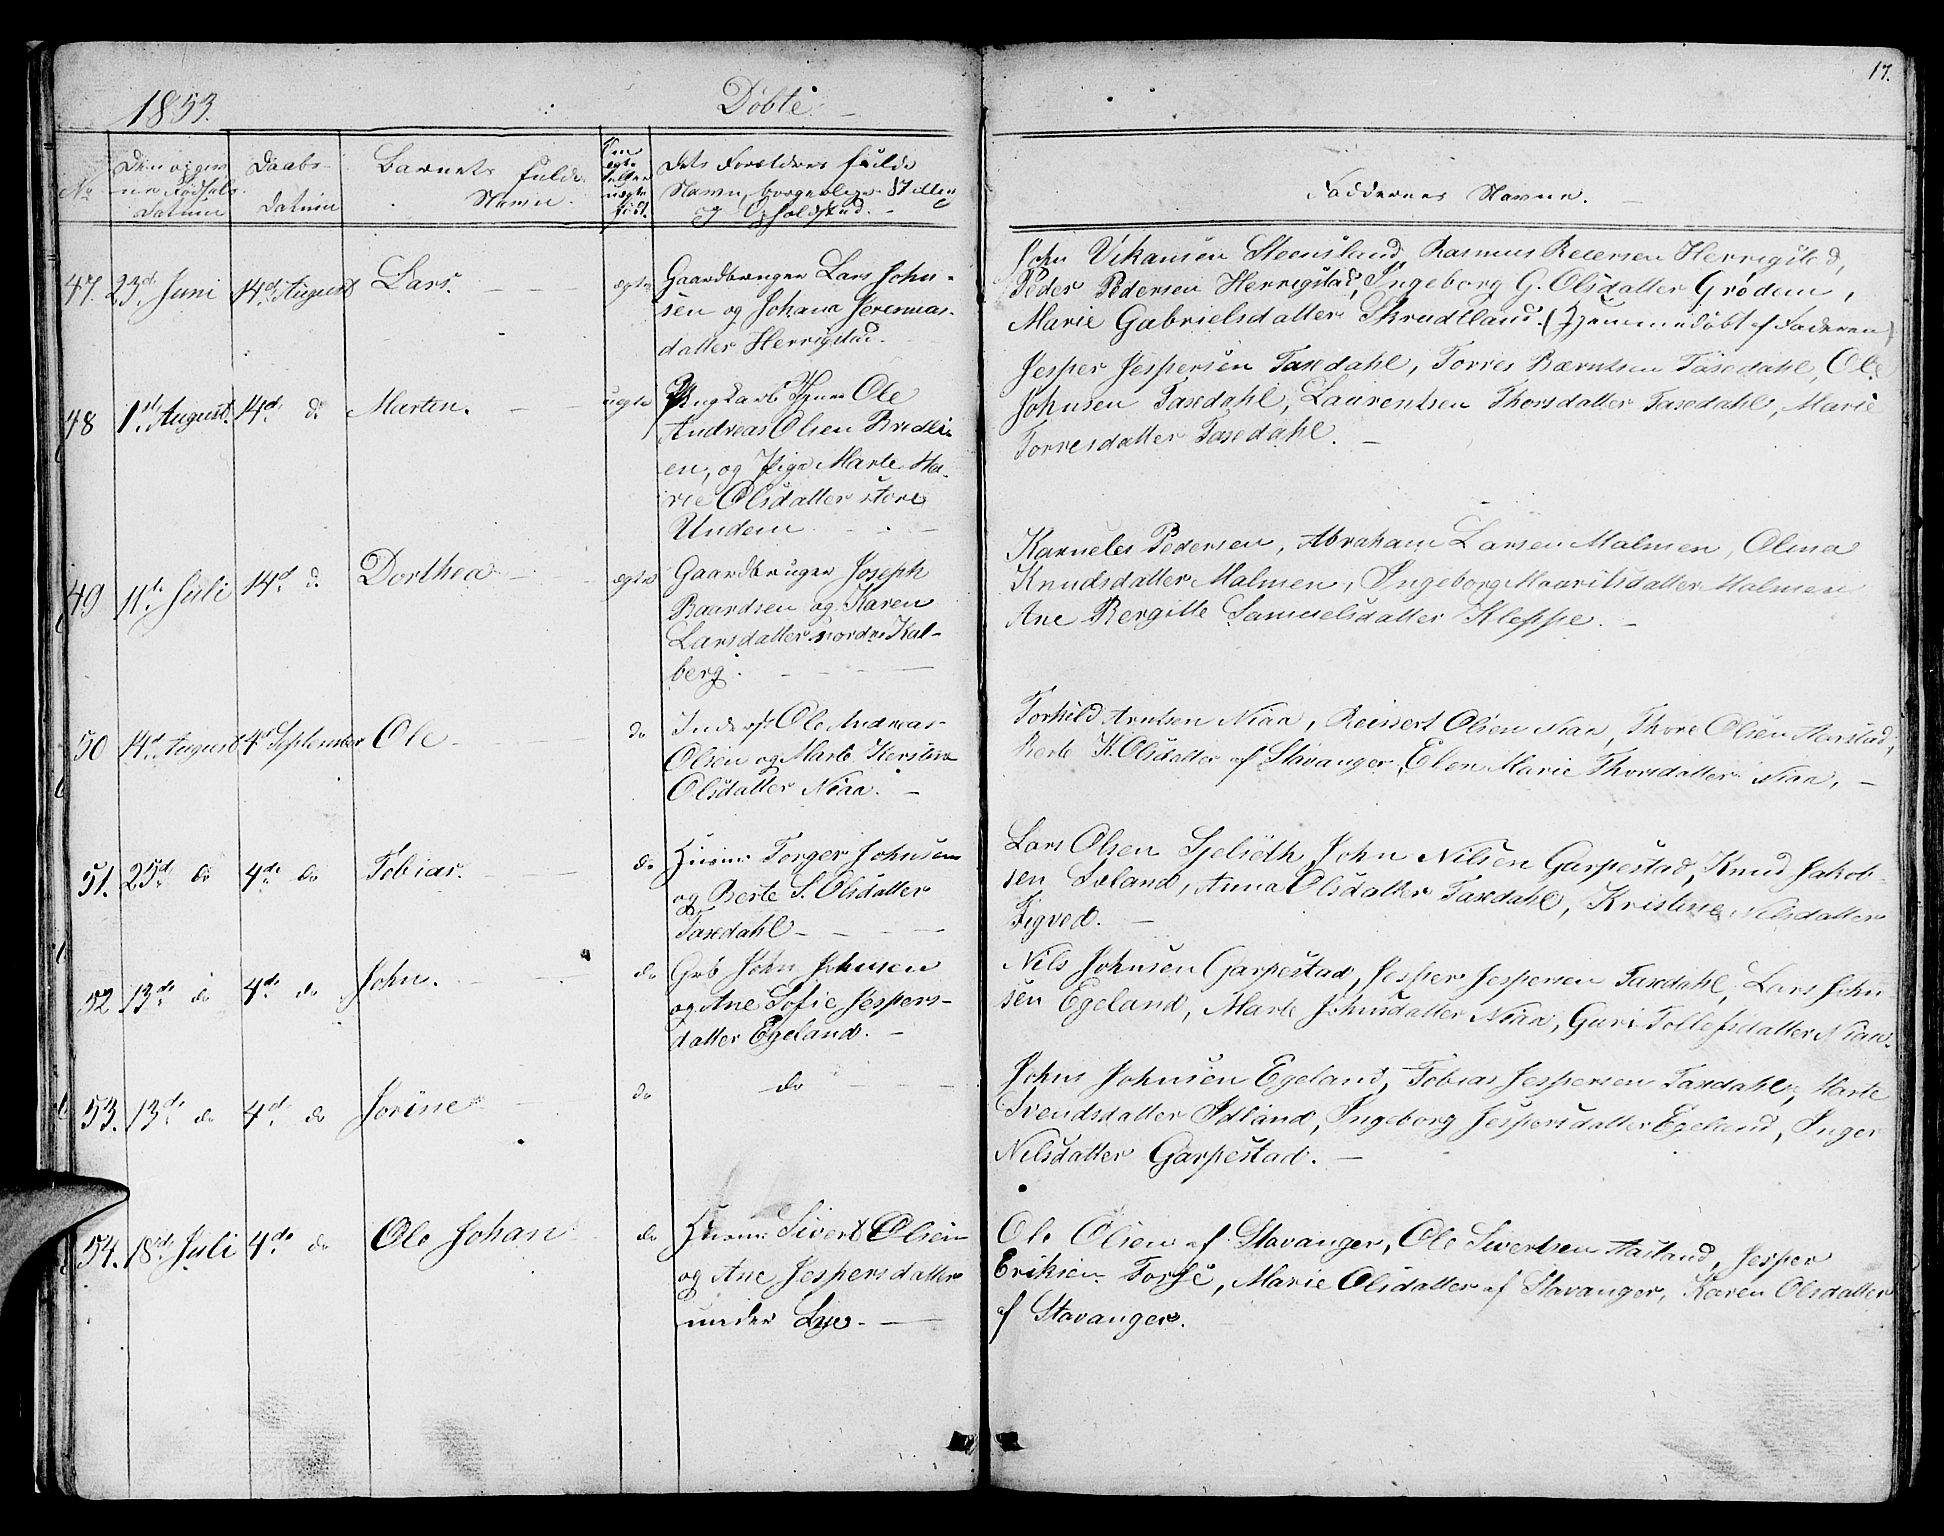 17.
1853.
Döbte.
No
Den opgivne Fødsels Datum
Daabs-Datum
Barnets fulde Navn.
Om egte eller uegte født.
Dets Forældres fulde Navn, borgerlige Stilling og Opholdsted.
Faddernes Navne.
47. 23d. Juni 14d. August Lars. egte
Gaardbruger Lars John-
sen og Johana Jeremias-
datter Herrigstad.
John Steensland, Rasmus Herrigstad,
Peder Pedersen Herrigstad, Ingeborg G. Olsdatter Grødem,
Marie Gabrielsdatter Skrudland. (Hjemmedöbt af Faderen)
48 1st. August. 14d. do. Marten. uegte
Ungkarl Ole
Andreas Olsen Bredli-
en, og Pige Marte Ma-
rie Olsdatter store
Undem
Jesper Jespersen Taxedahl, Torres Bærntsen Taxedahl, Ole
Johnsen Taxedahl, Laurentsen Thorsdatter Taxedahl, Marie
Torresdatter Taxedahl.
49 11te. Juli 14d. do. Dorthea egte
Gaardbruger Joseph
Baardsen og Karen
Larsdatter nordre Kal-
berg.
Karneles Pedersen, Abraham Larsen Malmen, Olena
Knudsdatter Malmen, Ingeborg Mauritsdatter Malmen
Ane Bergitte Samuelsdatter Kleppe.
50 14d. August 4d. September Ole do
Inders. Ole Andreas
Olsen og Marte Kerstine
Olsdatter Niaa.
Torkild Arntsen Niaa, Reinert Olsen Niaa, Thore Olsen Aarstad,
Berte K. Olsdatter af Stavanger, Elen Marie Thorsdatter Niaa,
51. 25d. do 4de. do Tobias. do
Husm: Torger Johnsen
og Berte S. Olsdatter
Taxedahl
Lars Olsen Sjelsöth, John Nilsen Garpestad, Knud Jakob-
sen Sæland, Anna Olsdatter Taxedahl, Kristine Nilsdatter
Sigved.
52 13de. do 4de. do John. do
Grb John Johnsen
og Ane Sofie Jespers-
datter Egeland.
Nils Johnsen Garpestad, Jesper Jespersen Taxedahl, Lars John-
sen Egeland, Marte Johnsdatter Niaa, Guri Tollefsdatter Niaa.
53. 13de. do 4d. do Jorine do
do
Johns Johnsen Egeland, Tobias Jespersen Taxdahl, Marte
Svendsdatter Idland, Ingeborg Jespersdatter Egeland, Inger
Nilsdatter Garpestad.
54. 18de. Juli 4de. do Ole Johan do
Husm: Sivert Olsen
og Ane Jespersdatter
under Lye.
Ole Olsen af Stavanger, Ole Sivertsen Aasland, Jesper
Eriksen Torse, Marie Olsdatter af Stavanger, Karen Olsdatter
af Stavanger.